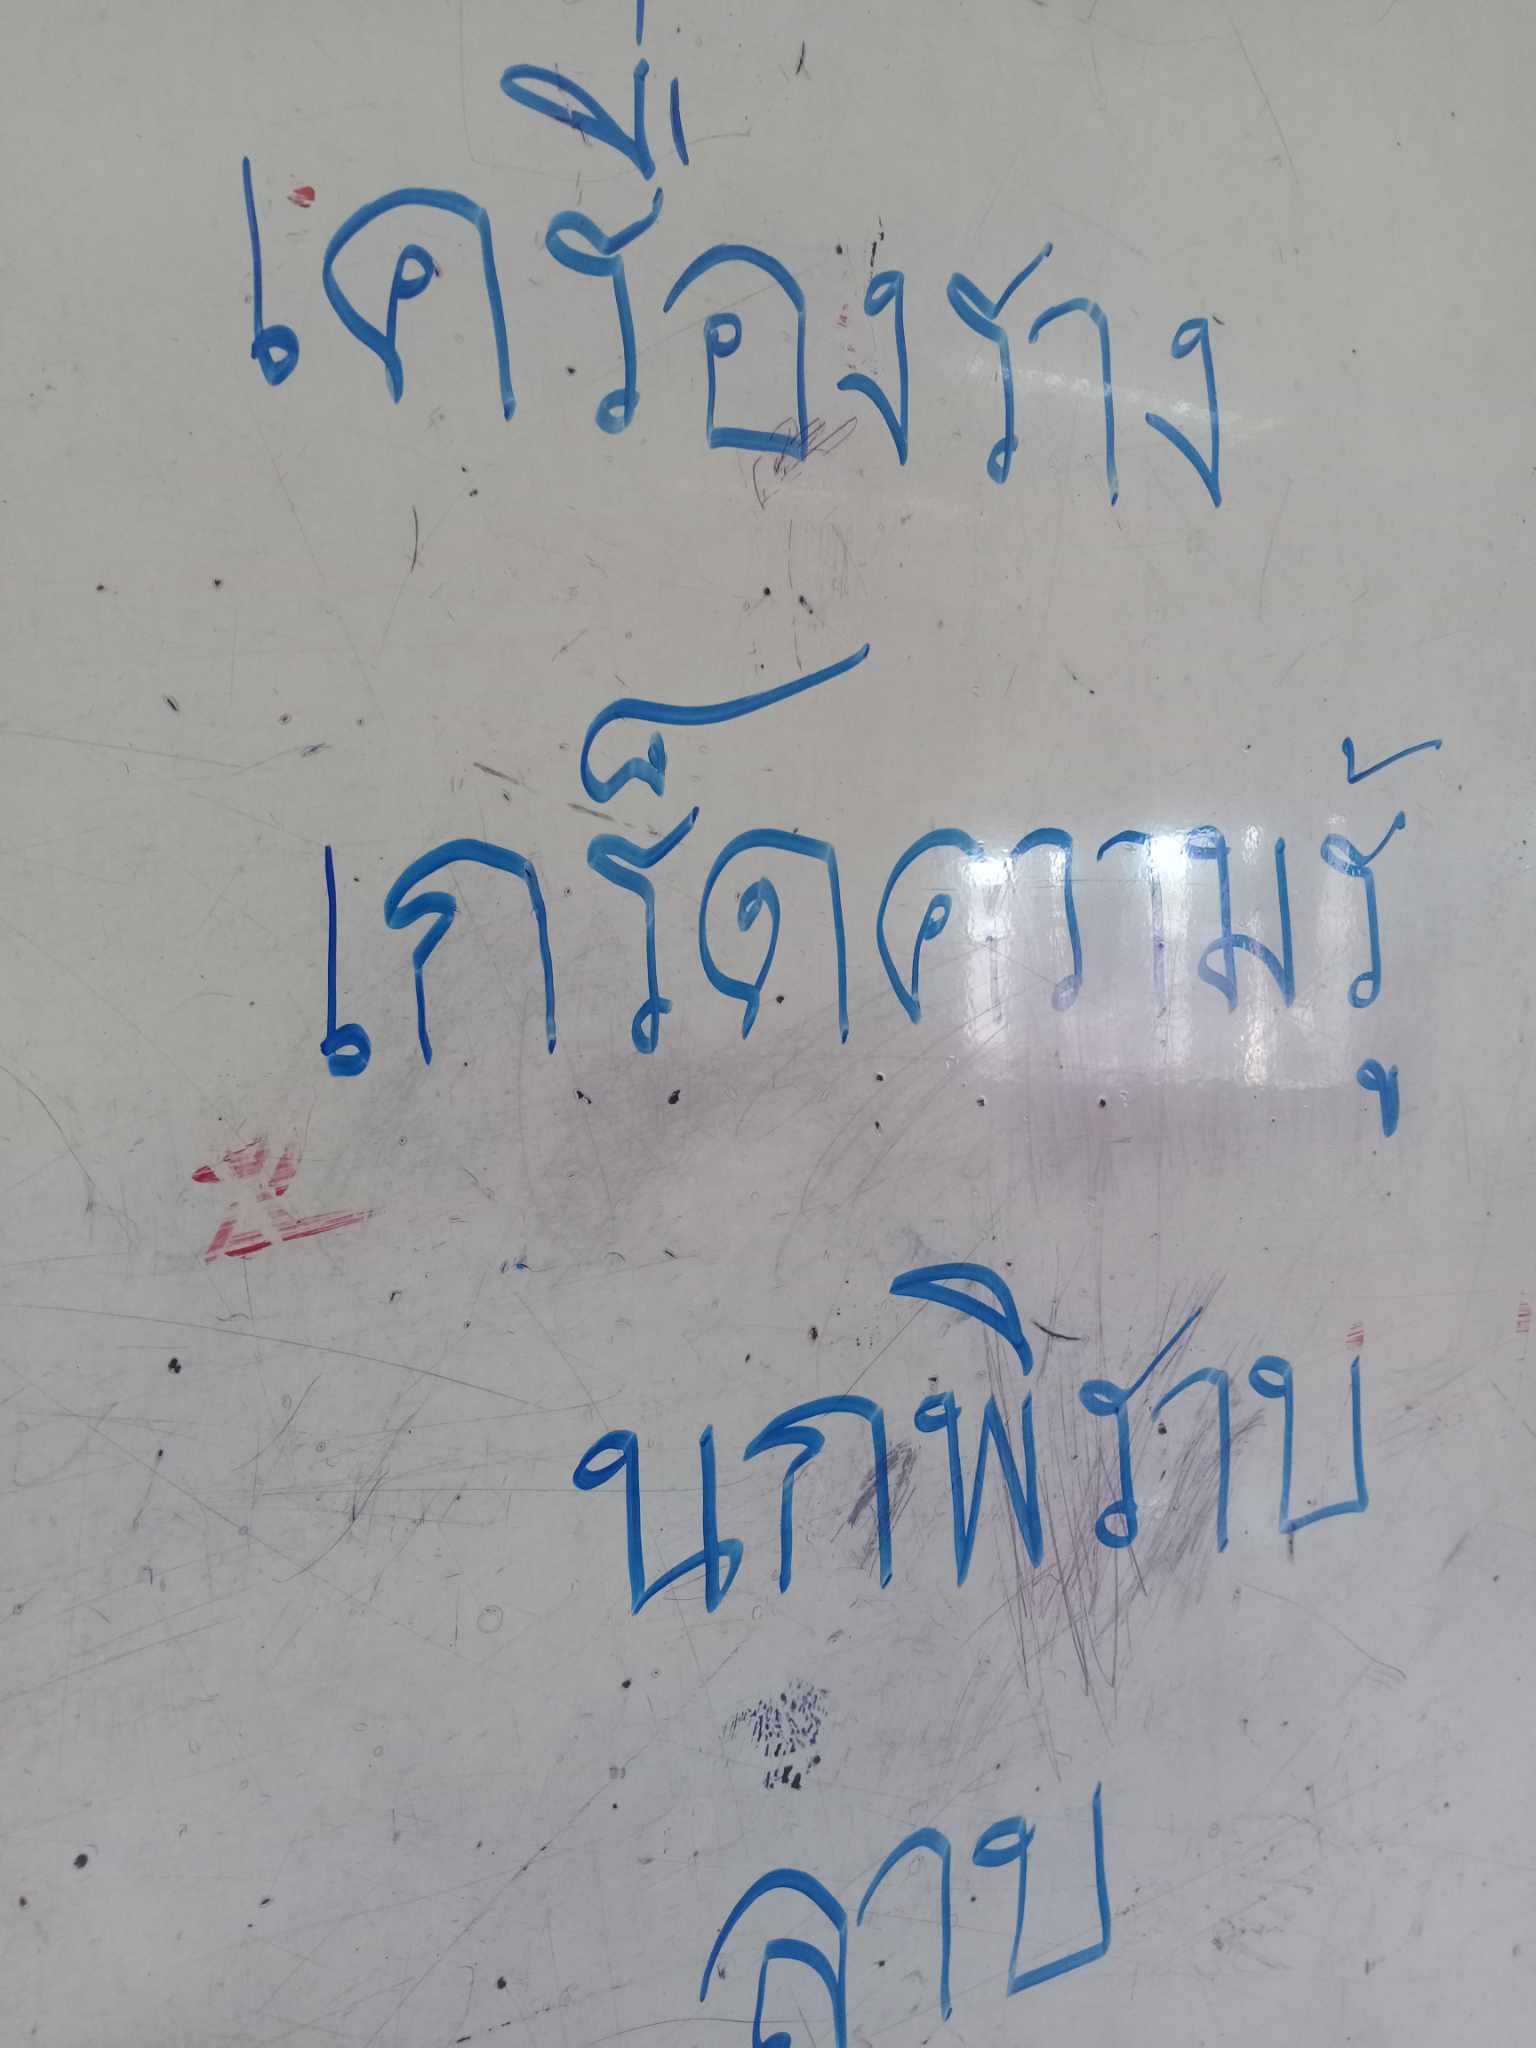 เครื่องราง
เกร็ดความรู้
นกพิราบ
ลาบ